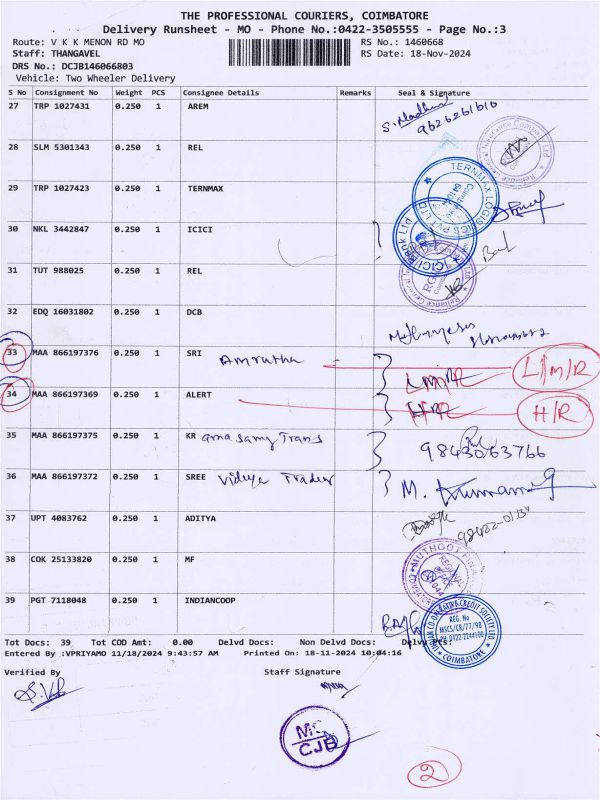 THE PROFESSIONAL COURIERS, COIMBATORE
Delivery Runsheet - MO - Phone No.:0422-3505555 - Page No.:3
Route: V K K MENON RD MO RS No.: 1460668
Staff: THANGAVEL RS Date: 18-Nov-2024
DRS No.: DCJB146066803
Vehicle: Two Wheeler Delivery
S No Consignment No Weight PCS Consignee Details Remarks Seal & Signature
27 TRP 1027431 0.250 1 AREM
9626261616
28 SLM 5301343 0.250 1 REL
29 TRP 1027423 0.250 1 TERNMAX
TERNMAX LOGISTICS PVT LTD
30 NKL 3442847 0.250 1 ICICI
ICICI Bank Ltd
31 TUT 988025 0.250 1 REL
32 EDQ 16031802 0.250 1 DCB
33 MAA 866197376 0.250 1 SRI Amrutha L/M/R
34 MAA 866197369 0.250 1 ALERT H/R
35 MAA 866197375 0.250 1 KR amasamy Trans 9843063766
36 MAA 866197372 0.250 1 SREE Vidya Trader M. Kumaran
37 UPT 4083762 0.250 1 ADITYA
38 COK 25133820 0.250 1 MF
39 PGT 7118048 0.250 1 INDIANCOOP
REG. No
MSCS/CR/77/98
PH: 0422-2244100
COIMBATORE
Tot Docs: 39 Tot COD Amt: 0.00 Delvd Docs: Non Delvd Docs: Delvy Pcs:
Entered By :VPRIYAMO 11/18/2024 9:43:57 AM Printed On: 18-11-2024 10:04:16
Verified By Staff Signature
MO
CJB
2